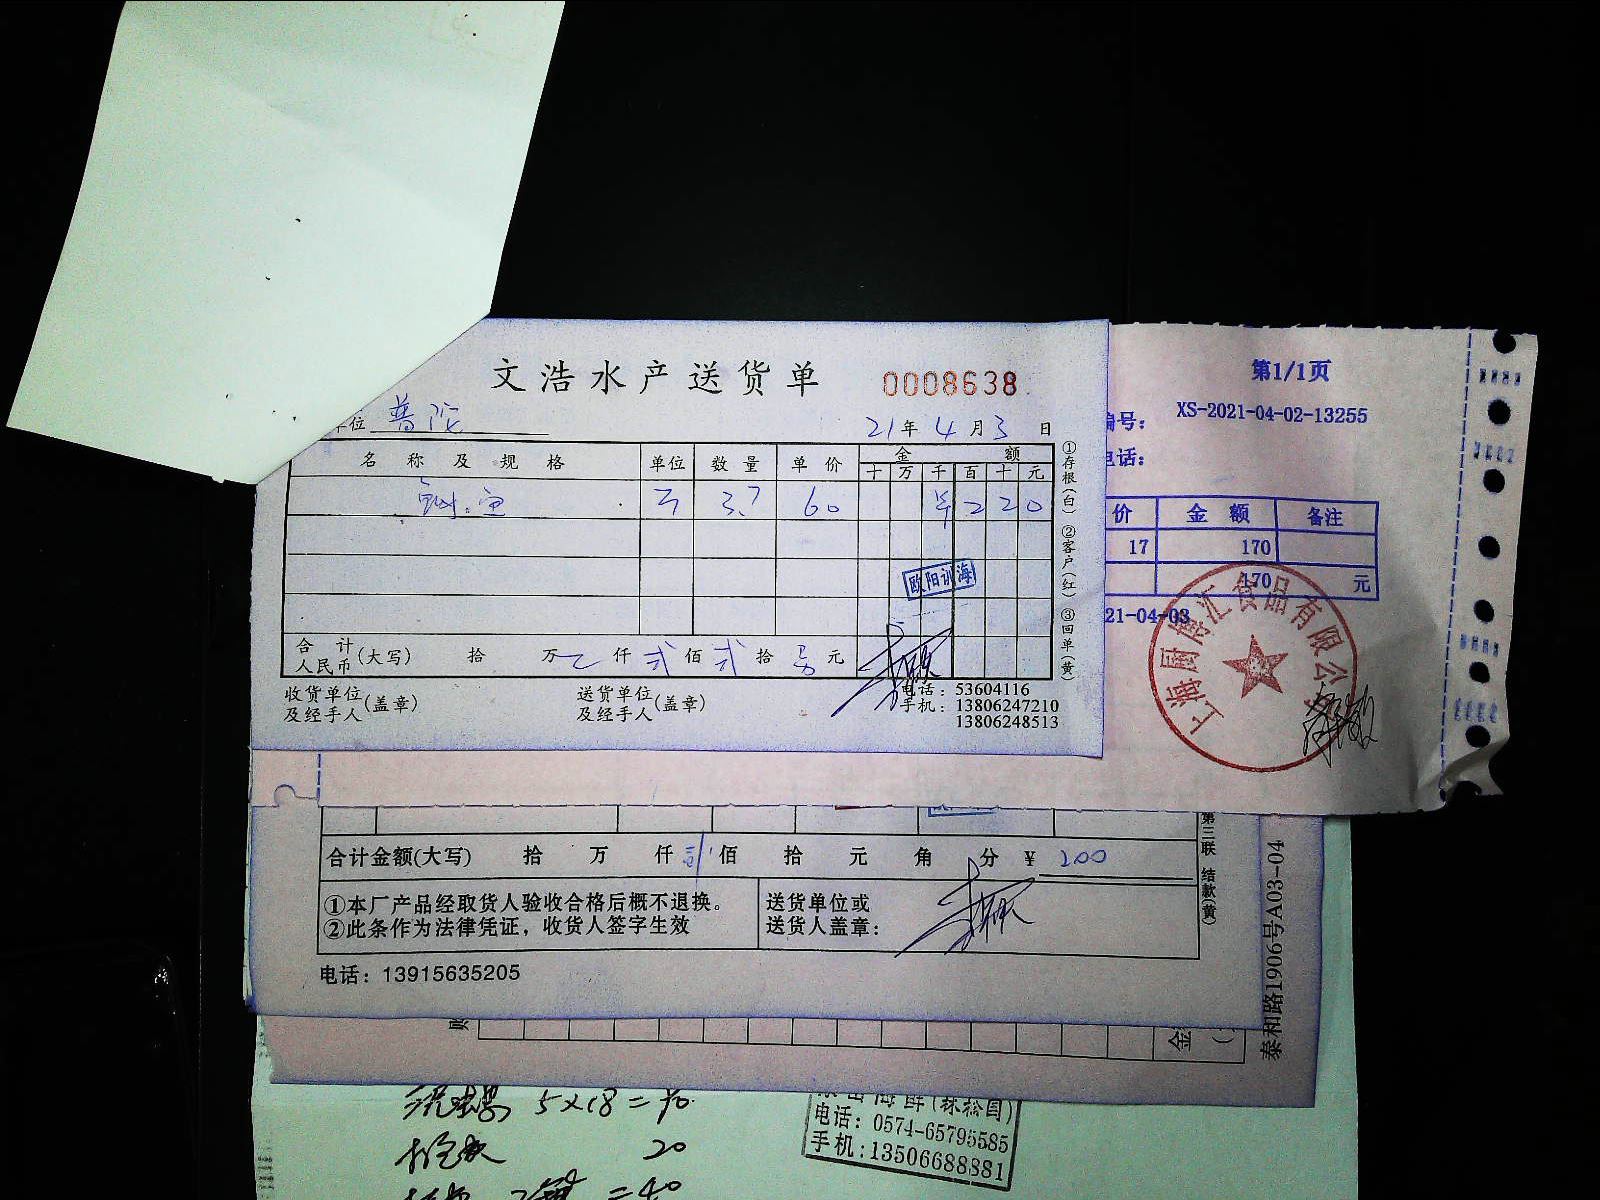 文浩水产送货单 0008638
单位 普陀 21年4月3日
名称及规格 单位 数量 单价 金额
十 万 千 百 十 元
3.7 60 ¥ 2 2 0
欧阳训海
合计人民币(大写) 拾 万 仟 弍 佰 弍 拾 元
收货单位及经手人(盖章) 送货单位及经手人(盖章)
电话：53604116
手机：13806247210
13806248513
①存根(白) ②客户(红) ③回单(黄)
第1/1页
编号： XS-2021-04-02-13255
电话：
价 金额 备注
17 170
170 元
21-04-03
上海厨博汇食品有限公
合计金额(大写) 拾 万 仟 佰 拾 元 角 分 ¥ 200
①本厂产品经取货人验收合格后概不退换。
②此条作为法律凭证，收货人签字生效
送货单位或
送货人盖章：
第三联 结款(黄)
电话：13915635205
泰和路1906号A03-04
金
5×18=90
20
=40
电话：0574-65795585
手机：13506688881